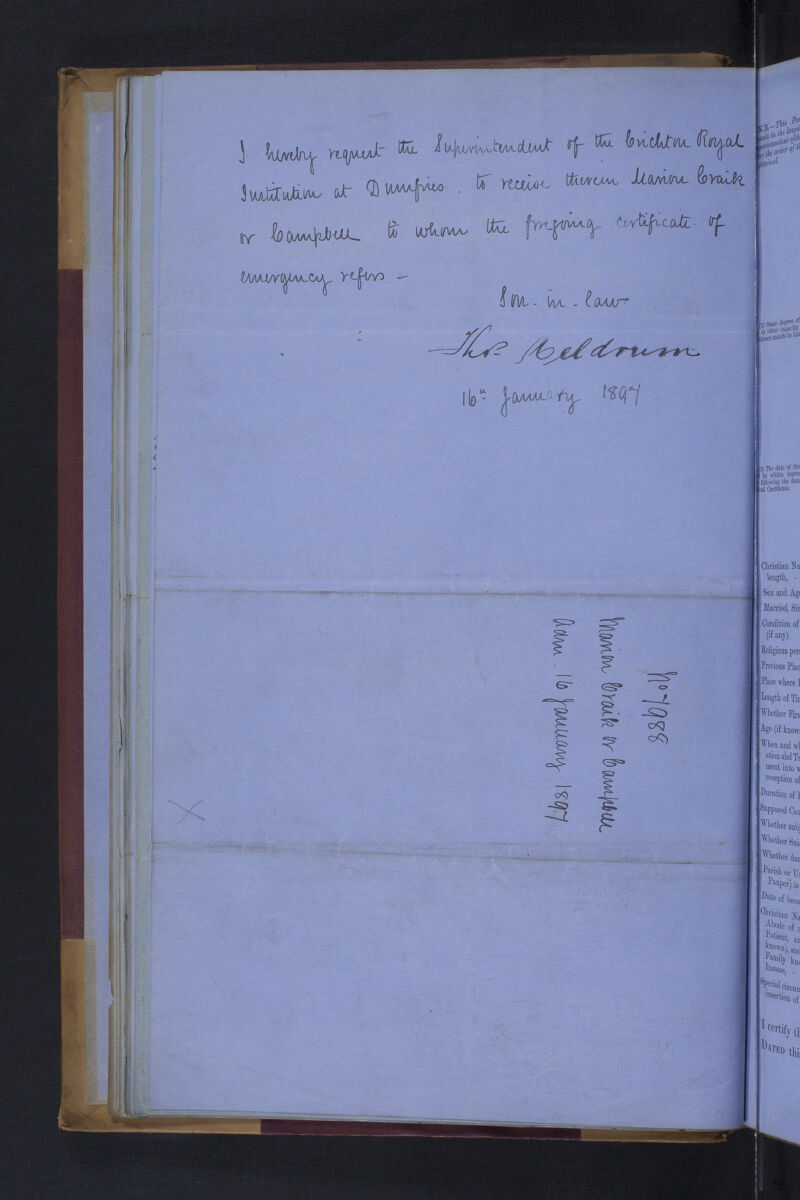 I hereby request the Superintendent of the Crichton Royal
Institution at Dumfries. to receive therein Marion Craik
or Campbell to whom the foregoing certificate of
emergency refers -
Son-in-law
Thos. Meldrum
16th January 1897.
No 7988
Marion Craik or Campbell
Adm. 16 January 1897
X
N.B.—This
(1) State degree of
or other capacity
(2) The date of
following the
Certificate.
Christian Na
length, -
Sex and Age
Married, Sin
Condition of
(if any).
Religious per
Previous Plac
Place where
Length of Ti
Whether Firs
Age (if know
When and wh
ation and T
ment into
reception of
Duration of
Supposed Cau
Whether subj
Whether Suic
Whether dan
Parish or U
Pauper) is
Date of beco
Christian Na
Abode of
Patient, an
known), and
Family kno
Insane, -
Special circum
insertion of
I certify th
DATED thi